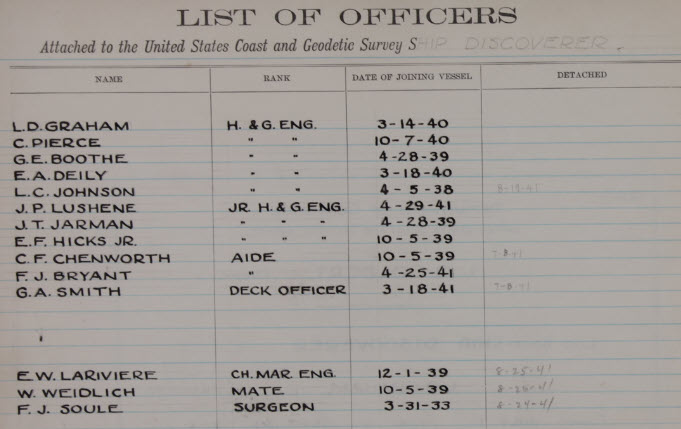 LIST OF OFFICERS
Attached to the United States Coast and Geodetic Survey SHIP DISCOVERER.
NAME RANK DATE OF JOINING VESSEL DETACHED
L.D. GRAHAM H. & G. ENG. 3-14-40
C. PIERCE " " 10-7-40
G.E. BOOTHE " " 4-28-39
E.A. DEILY " " 3-18-40
L.C. JOHNSON " " 4-5-38
J.P. LUSHENE JR. H. & G. ENG. 4-29-41
J.T. JARMAN " " " 4-28-39
E.F. HICKS JR. " " " 10-5-39
C.F. CHENWORTH AIDE 10-5-39 7-8-41
F.J. BRYANT " 4-25-41
G.A. SMITH DECK OFFICER 3-18-41 7-8-41
E.W. LARIVIERE CH. MAR. ENG. 12-1-39 8-25-41
W. WEIDLICH MATE 10-5-39
F.J. SOULE SURGEON 3-31-33